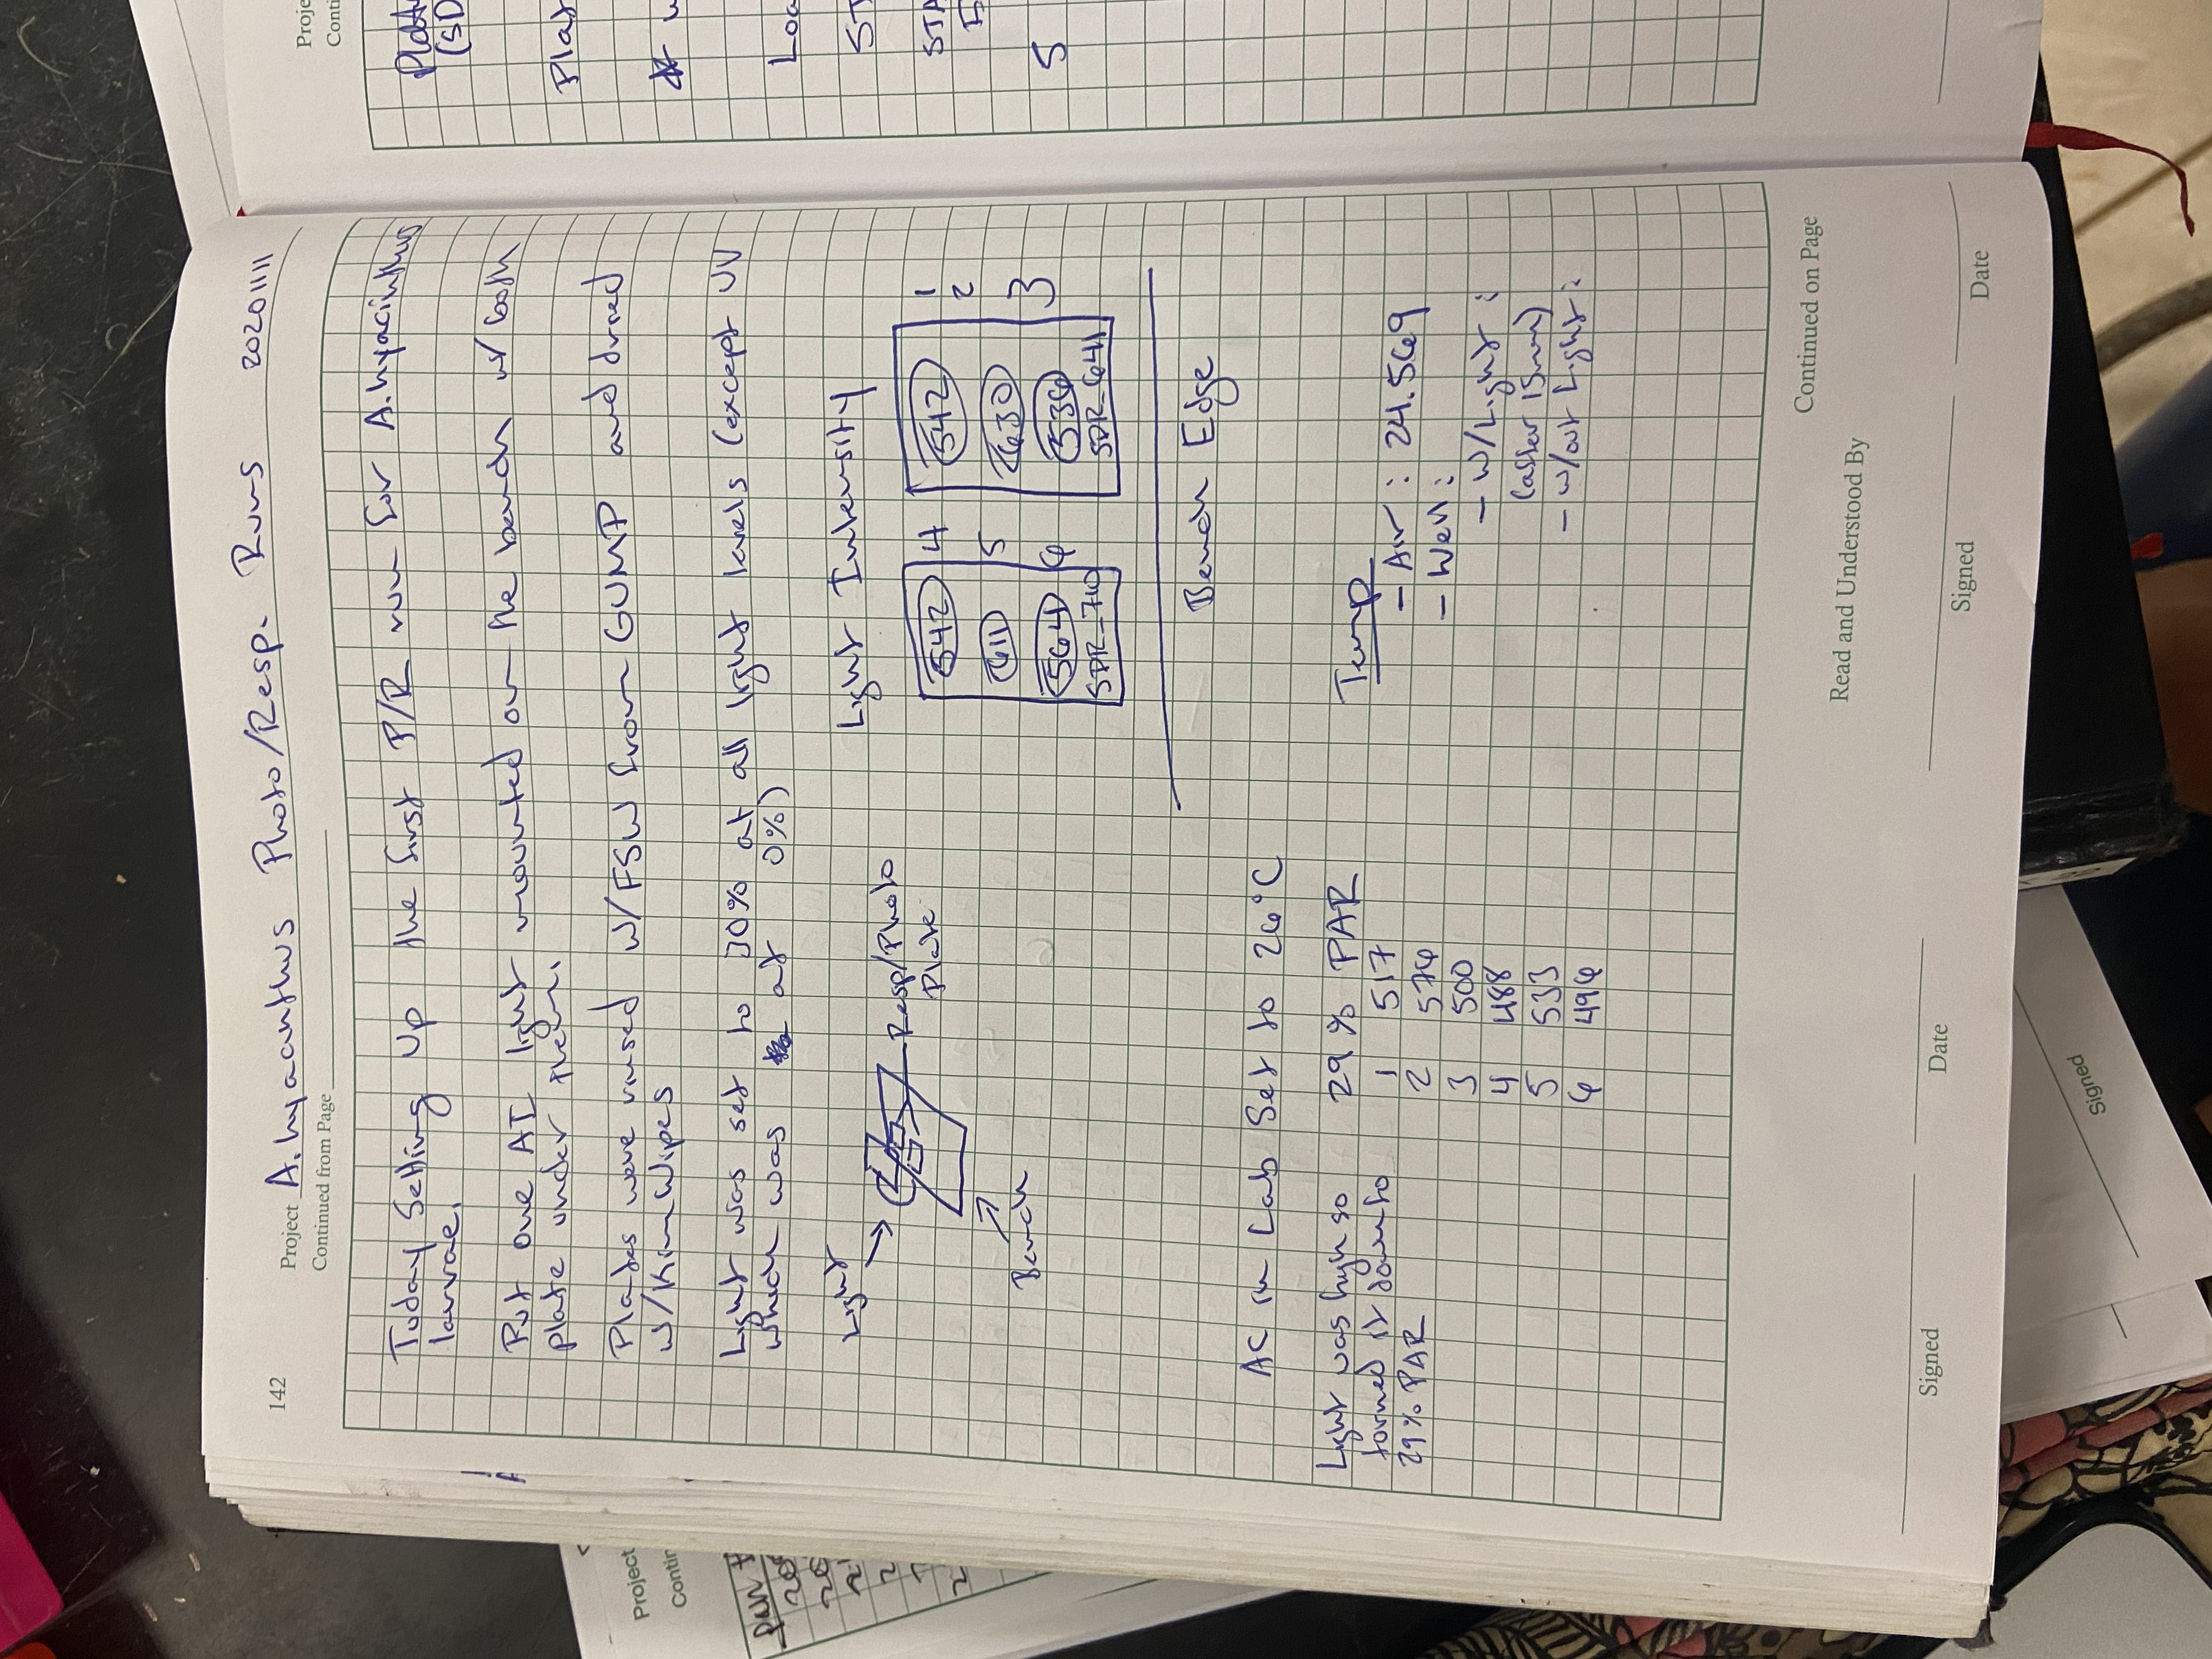 142
Project A. hyacanthus Photo/Resp. Runs 20201111
Continued from Page
Today Setting Up the first P/R run for A. hyacinthus
larvae.
Put one AI light mounted on the bench w/ both
plate under them.
Plates were rinsed w/FSW from GUMP and dried
w/KimWipes
Light was set to 30% at all light levels (except UV
which was at 0%)
Light
Resp/Photo
Plate
Bench
Light Intensity
542 4 542 1
2
611 5 630
564 6 536 3
SDR_710 SDR_641
Bench Edge
AC in Lab Set to 26°C
Light was high so
turned it down to
29% PAR
29% PAR
1 517
2 576
3 500
4 488
5 533
6 496
Temp
- Air : 24.569
- Well :
- W/Light :
(after 15min)
- w/out Light :
Continued on Page
Read and Understood By
Signed
Date
Signed
Date
Signed
Project